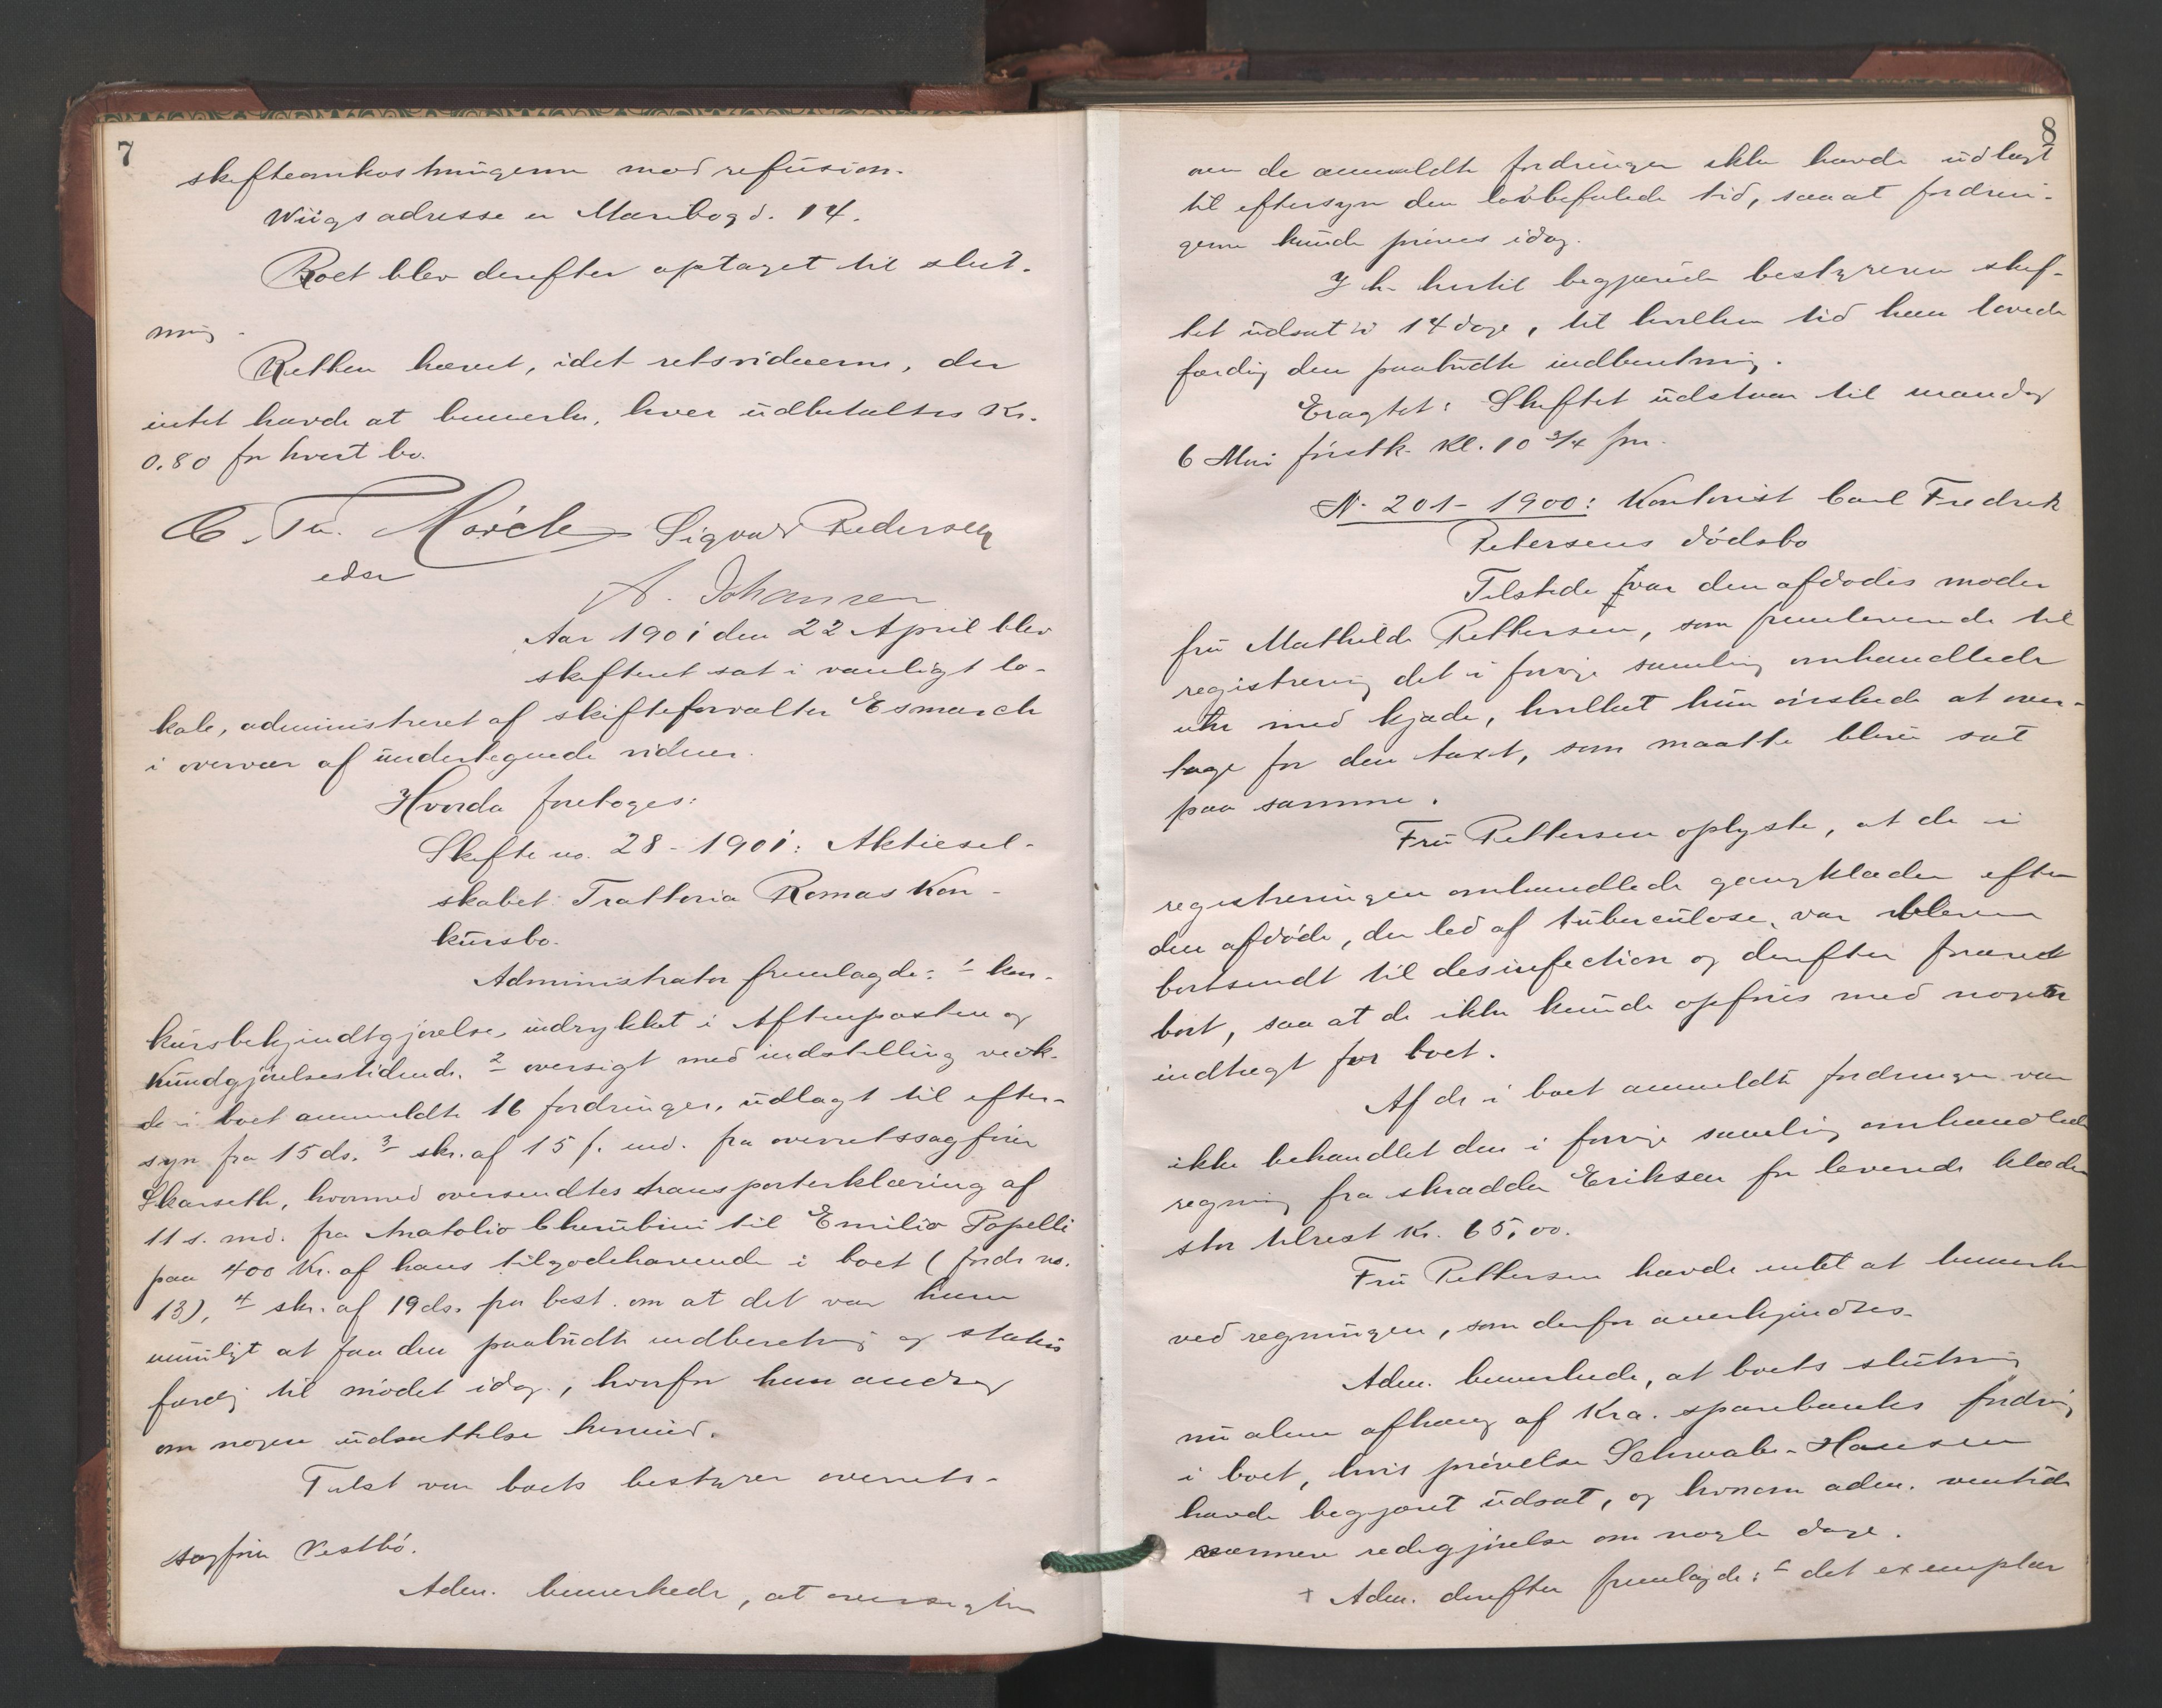 7
skifteomkostningerne mod refusion.
Wiigs adresse er Maribogd. 14.
Boet blev derefter optaget til slut-
ning.
Retten hævet, idet retsvidnerne, der
intet havde at bemerke, hver udbetaltes Kr.
0.80 for hvert bo.
C. Th. Mörch Sigvard Pedersen
edsv
A. Johansen
Aar 1901 den 22 April blev
skifteret sat i vanligt lo-
kale, administreret af skifteforvalter Esmarch
i overvær af undertegnede vidner.
Hvorda foretoges:
Skifte no. 28 - 1901: Aktiesel-
skabet: Trattoria Romas Kon-
kursbo.
Administrator fremlagde: 1 kon-
kursbekjendtgjørelse, indrykket i Aftenposten og
Kundgjørelsestidende. 2 oversigt med indstilling vedk.
de i boet anmeldte 16 fordringer, udlagt til efter-
syn fra 15 ds. 3 skr. af 15 s. md. fra overretssagfører
Skarseth, hvormed oversendtes transporterklæring af
11 s. md. fra Anatolio Cherubini til Emilio Popelli
paa 400 Kr. af hans tilgodehavende i boet (fordr no.
13), 4 skr. af 19 ds. fra best. om at det var ham
umuligt at faa den paabudte indberetning og status
færdig til mødet idag, hvorfor han androg
om nogen udsættelse hermed.
Tilst var boets bestyrer overrets-
sagfører Vestbö.
Adm. bemerkede, at oversigten
8
over de anmeldte fordringer ikke havde udlagt
til eftersyn den lovbefalede tid, saaat fordrin-
gerne kunde prøves idag.
I h. hertil begjærede bestyreren skif-
tet udsat i 14 dage, til hvilken tid han lovede
færdig den paabudte indberetning.
Eragtet: Skiftet udstaar til mandag
6 Mai førstk. Kl. 10 3/4 fm.
N. 201 - 1900: Kontorist Carl Fredrik
Petersens dödsbo
Tilstede var den afdødes moder
fru Mathilde Pettersen, som fremleverede til
registrering det i forrige samling omhandlede
uhr med kjæde, hvilket hun ønskede at over-
tage for den taxt, som maatte blive sat
paa samme.
Fru Pettersen oplyste, at de i
registreringen omhandlede gangklæder efter
den afdøde, der led af tuberculose, var bleven
bortsendt til desinfection og derefter foræret
bort, saa at de ikke kunde opføres med nogen
indtægt for boet.
Af de i boet anmeldte fordringer var
ikke behandlet den i forrige samling omhandlede
regning fra skrædder Eriksen for leverede klæder
stor tilrest Kr. 65,00.
Fru Pettersen havde intet at bemerke
ved regningen, som derfor anerkjendtes.
Adm. bemerkede, at boets slutning
nu alene afhang af Kra. sparebanks fordring
i boet, hvis prøvelse Schwabe-Hansen
havde begjæret udsat, og hvorom adm. ventede
nærmere redegjørelse om nogle dage.
+ Adm. derefter fremlagde: 5 det exemplar